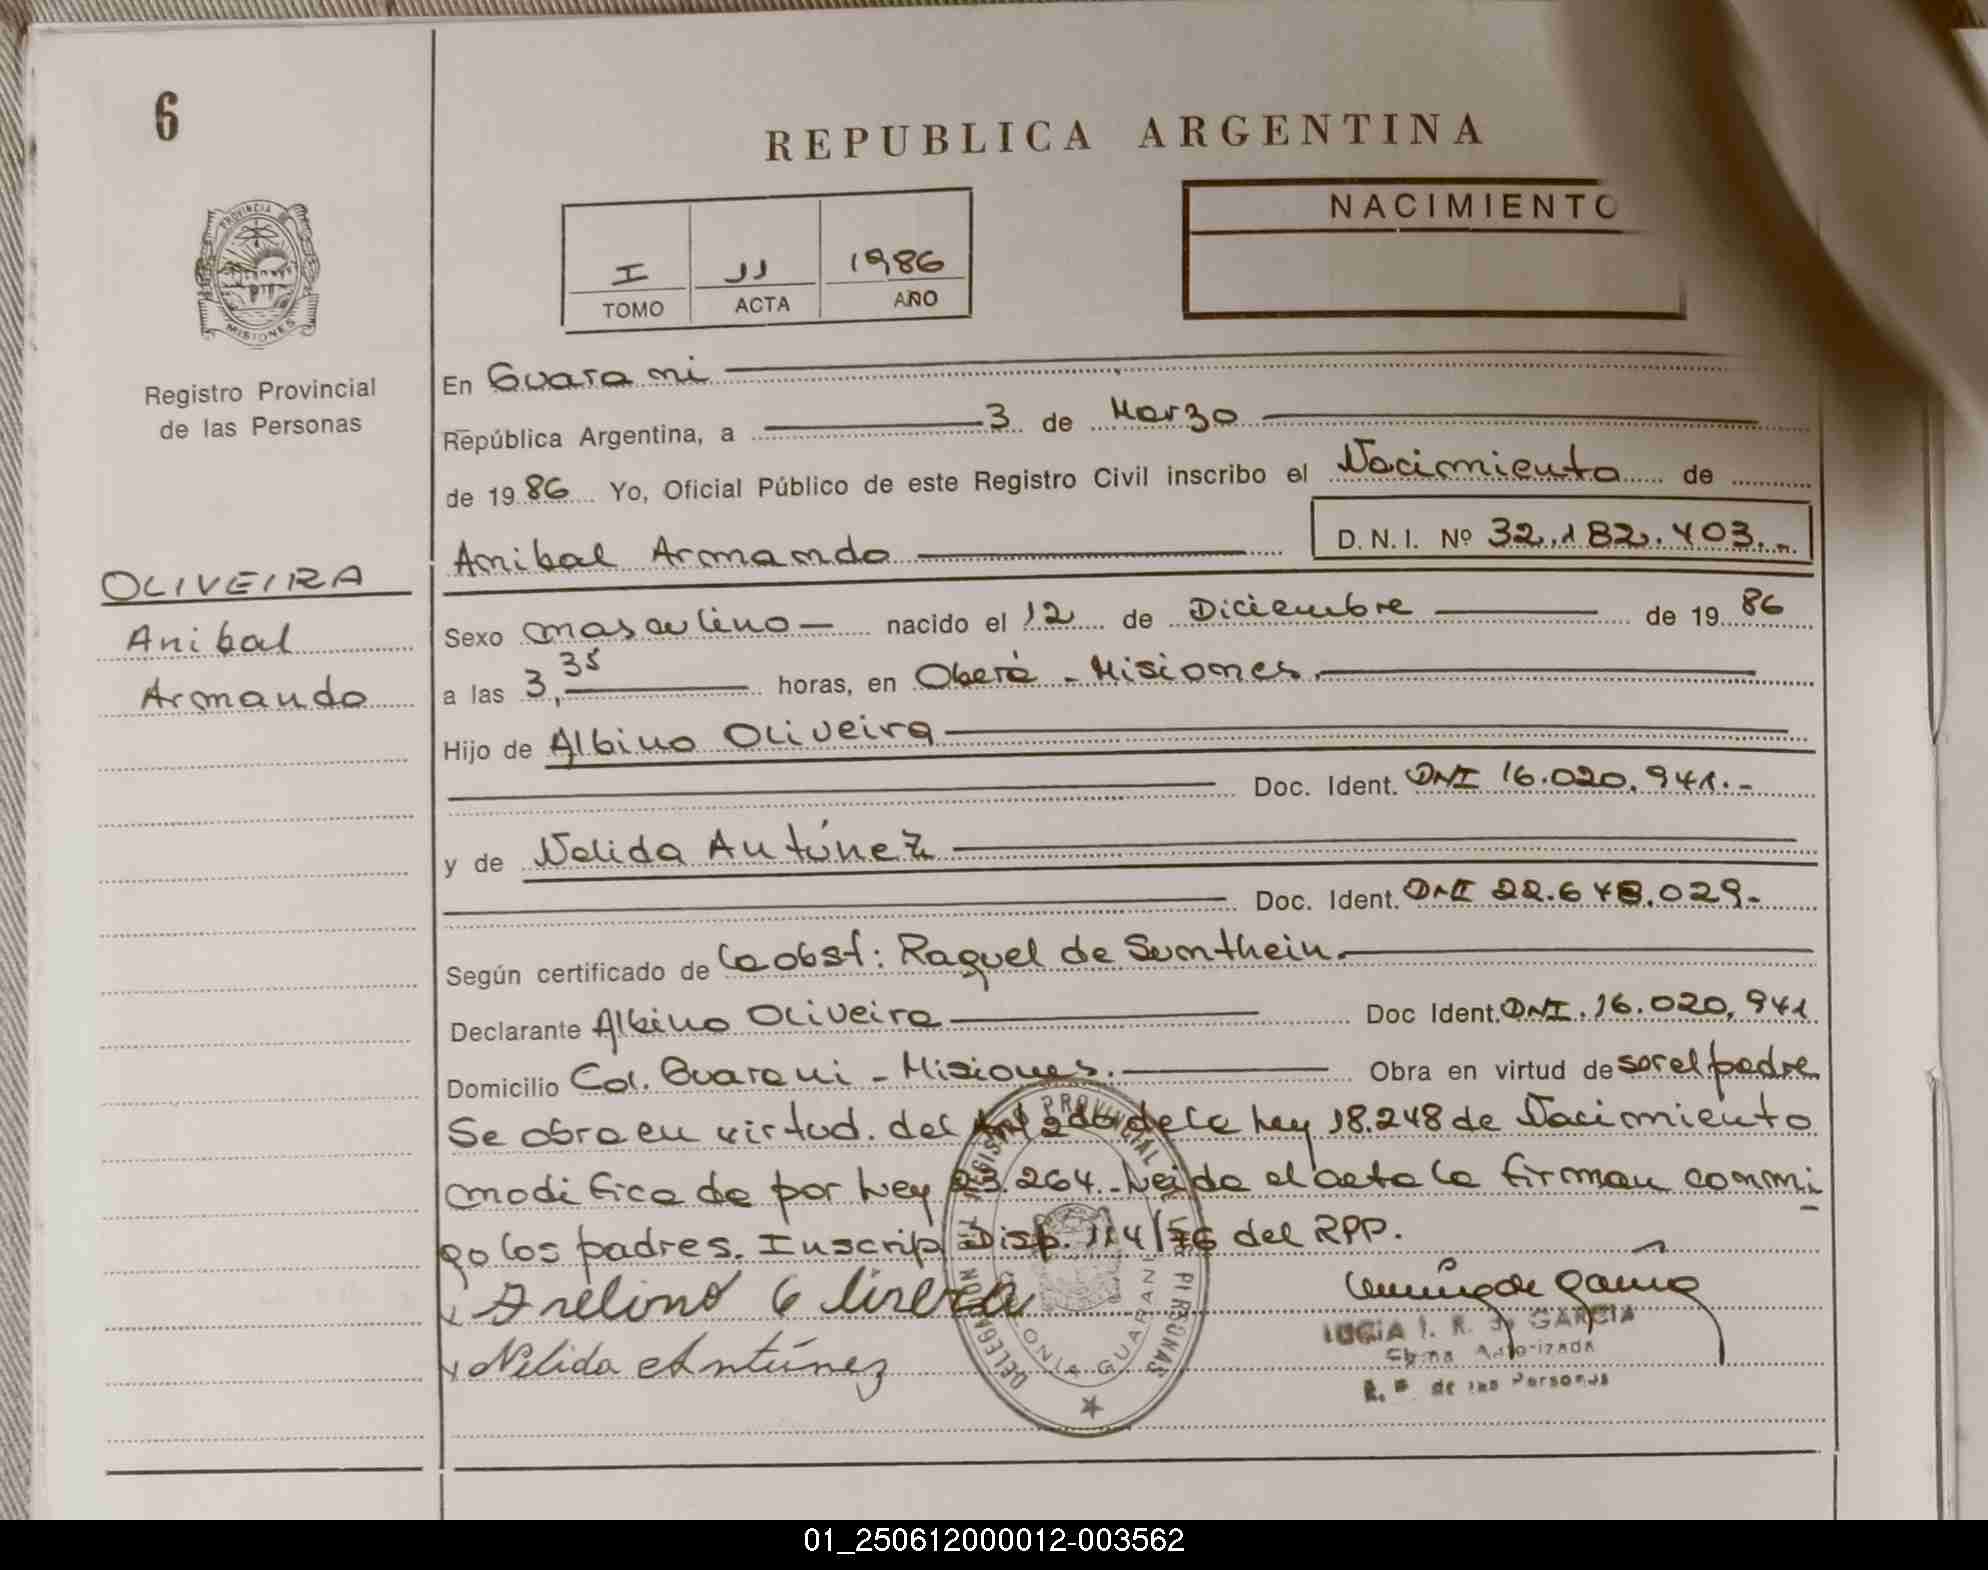 6
REPUBLICA ARGENTINA
PROVINCIA DE
MISIONES
Registro Provincial
de las Personas
I JJ 1986
TOMO ACTA AÑO
NACIMIENTO
En Guarani
República Argentina, a 3 de Marzo
de 1986 Yo, Oficial Público de este Registro Civil inscribo el Nacimiento de
Anibal Armando D.N.I. Nº 32.182.403.-
OLIVEIRA
Anibal
Armando
Sexo masculino nacido el 12 de Diciembre de 1986
a las 3,35 horas, en Oberá - Misiones
Hijo de Albino Oliveira
Doc. Ident. DNI 16.020.941.-
y de Nelida Antúnez
Doc. Ident. DNI 22.648.029.-
Según certificado de la obst: Raquel de
Declarante Albino Oliveira Doc Ident. DNI. 16.020.941
Domicilio Col. Guarani - Misiones. Obra en virtud de ser el padre
Se obra en virtud. del Art 2do de la Ley 18.248 de Nacimiento
modificada por Ley 23.264.- Leida el acta la firman conmi
go los padres. Inscrip Disp. 114/ del RPP.
Nelida Antúnez
DELEGACION DEL REGISTRO PROVINCIAL DE LAS PERSONAS
COLONIA GUARANI
LUCIA I. R. de GARCIA
Firma Autorizada
R. P. de las Personas
01_250612000012-003562